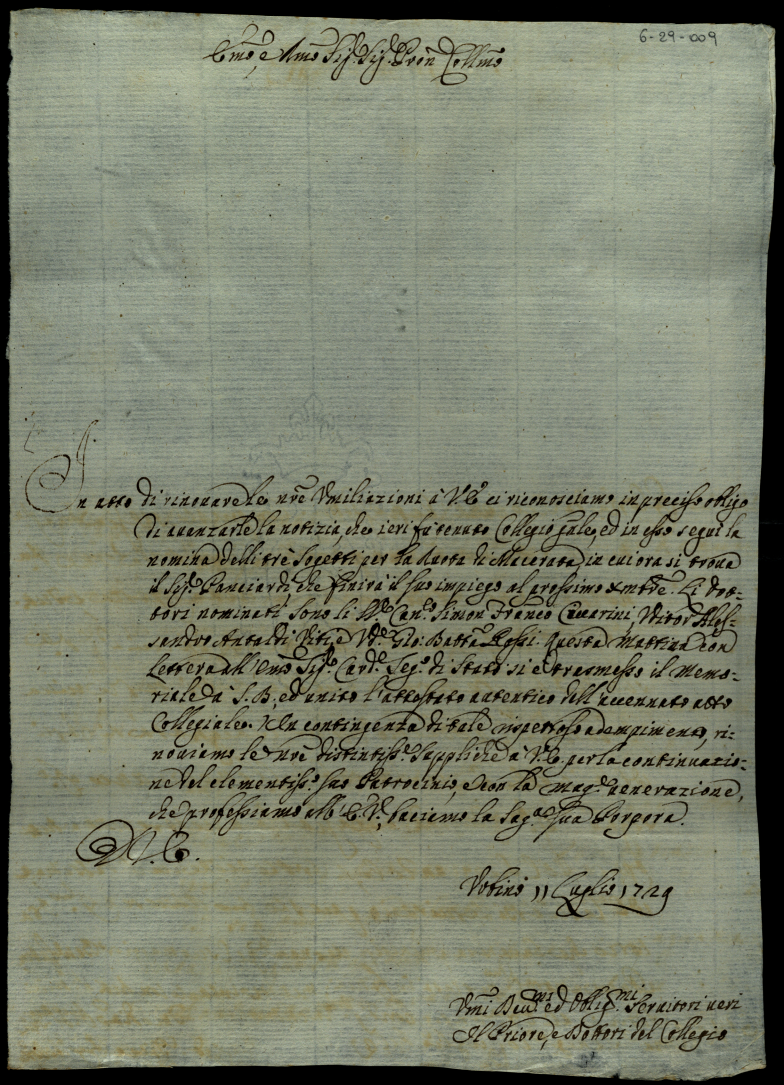 6-29-009
Emo, e Rmo Sig.r Sig.r Pron Collmo
In atto di rinovare le nre Umiliazioni à V.E. ci riconosciamo in preciso obligo
di avanzarle la notizia, che ieri fu tenuto Collegio gñale, ed in esso seguì la
nomina delli trè Sogetti per la Ruota di Macerata, in cui ora si trova
il Sig.r Panciardi, che finirà il suo impiego al prossimo xmbre. Li Dot-
tori nominati sono li Can.co Simon Franco Ceccarini, Ales-
sandro Antaldi Viti, e Gio: Batta Rossi. Questa mattina con
lettera all' Emo Sig.r Card.e Seg.o di Stato si è trasmesso il memo-
riale à S. B., ed unito l'attestato autentico dell'accennato atto
Collegiale. In contingenza di tale rispettoso adempimento, ri-
noviamo le nre distintiss.e suppliche à V.E. per la continuazio-
ne del clementiss.o suo Patrocinio, e con la mag.r venerazione,
che professiamo all' E.V., baciamo la Sag.a sua Porpora.
D. V. E.
Urbino 11 Luglio 1729
Umi Devmi ed Obligmi Servitori veri
Il Priore, e Dottori del Collegio